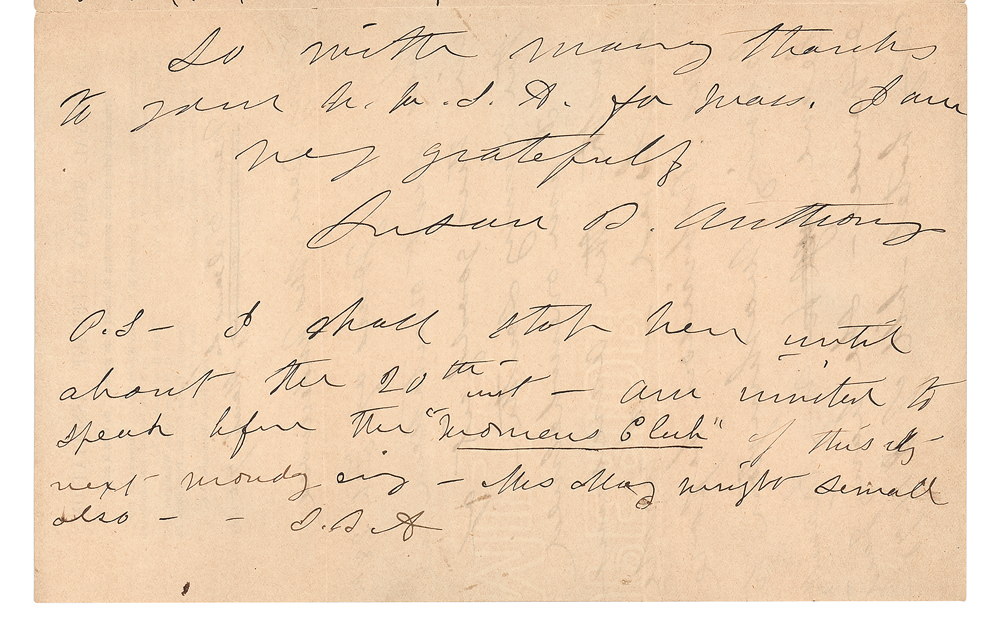 So with many thanks
to your N. W. S. A. for Mass. I am
very gratefully
Susan B. Anthony
P.S — I shall stop here until
about the 20th inst — am invited to
speak before the "Womens Club" of this city
next monday eve'g — Mrs May Wright Sewall
also — — S. B. A